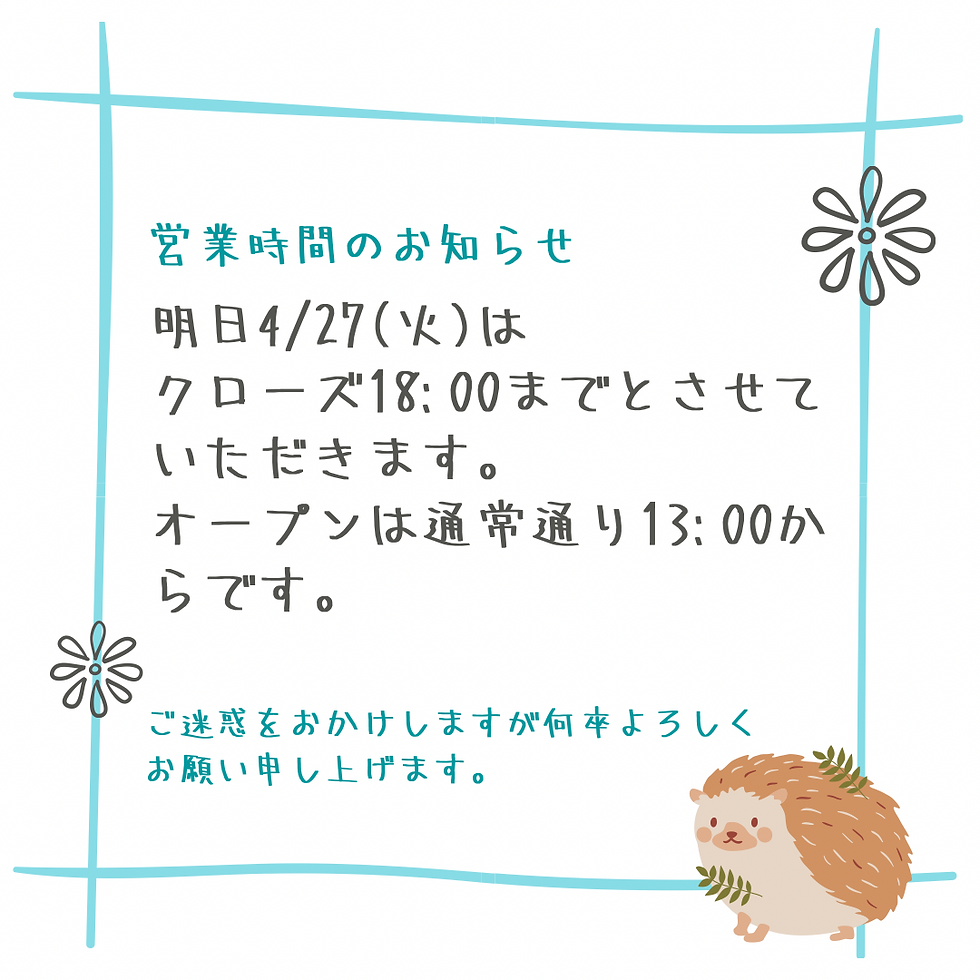 営業時間のお知らせ
明日4/27(火)は
クローズ18:00までとさせて
いただきます。
オープンは通常通り13:00か
らです。
ご迷惑をおかけしますが何卒よろしく
お願い申し上げます。